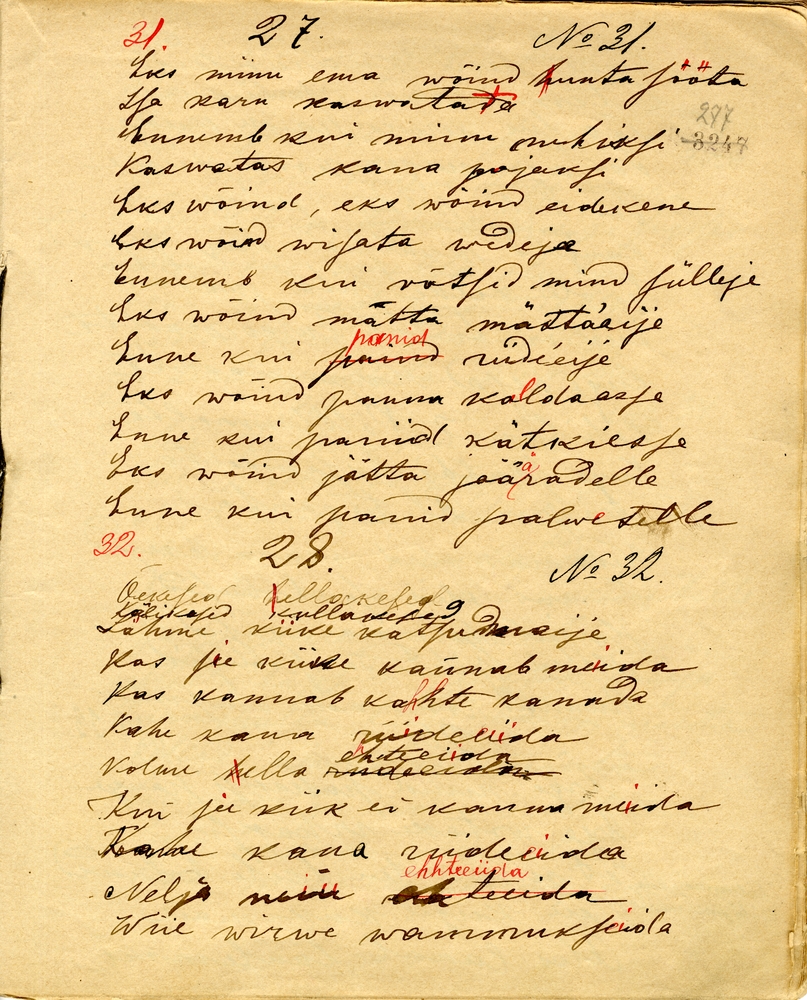 31. 27. No 31.
Eks minu ema wõind hunta sööta
Isa karu kaswatada
Ennemb kui minu
Kaswatas kana pojaksi
Eks wõind, eks wõind eidekene
Eks wõind wisata wedeje
Ennemb kui võtsid mind sülleje
Eks wõind mätta mättäaije
panid
Enne kui riideeije
Eks wõind panna koldaesse
Enne kui paniid kätkiesse
Eks wõind jätta jääradelle
Enne kui panid palwetelle
297
3247
32. 28. No 32.
Õekesed hellakesed
Kälikesed kullakesed
Lähme kiike katsudmaije
Kas jie kiike kannab meida
Kas kannab kahhte kanada
Kahe kana riideeiida
ehteeiida
Kolme hella
Kui jie kiik ei kanna meiida
Kahe kana riideeiida
ehhteeiida
Nelja neiu ehteeida
Wiie wirwe wammukseida